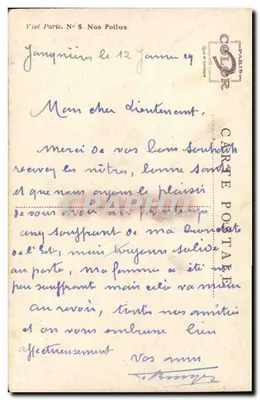 Viel Paris. N° 5. Nos Poilus
le 12 Janvier 59
PARIS
COLOR
CARTE POSTALE
Mon cher Lieutenant.
Merci de vos bons souhaits
recevez les nôtres, bonne santé
et que nous ayons le plaisir
de vous voir
souffrant de ma
de l'Est, mais toujours solide
au poste, ma femme a été
peu souffrante mais cela va mieux
au revoir, toutes nos amitiés
et on vous embrasse bien
affectueusement
Vos amis